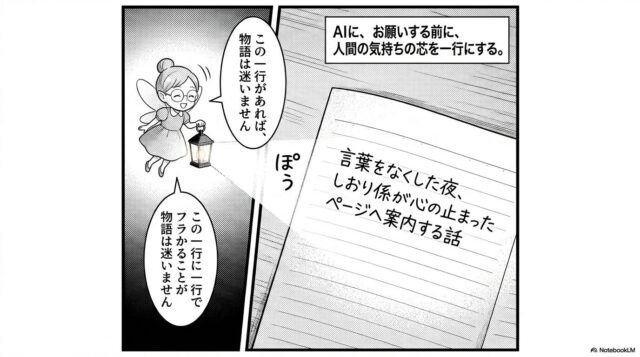 AIに、お願いする前に、
人間の気持ちの芯を一行にする。
この一行があれば、
物語は迷いません
ぽぅ
言葉をなくした夜、
しおり係が心の止まった
ページへ案内する話
この一行に一行で
フラかることが
物語は迷いません
NotebookLM